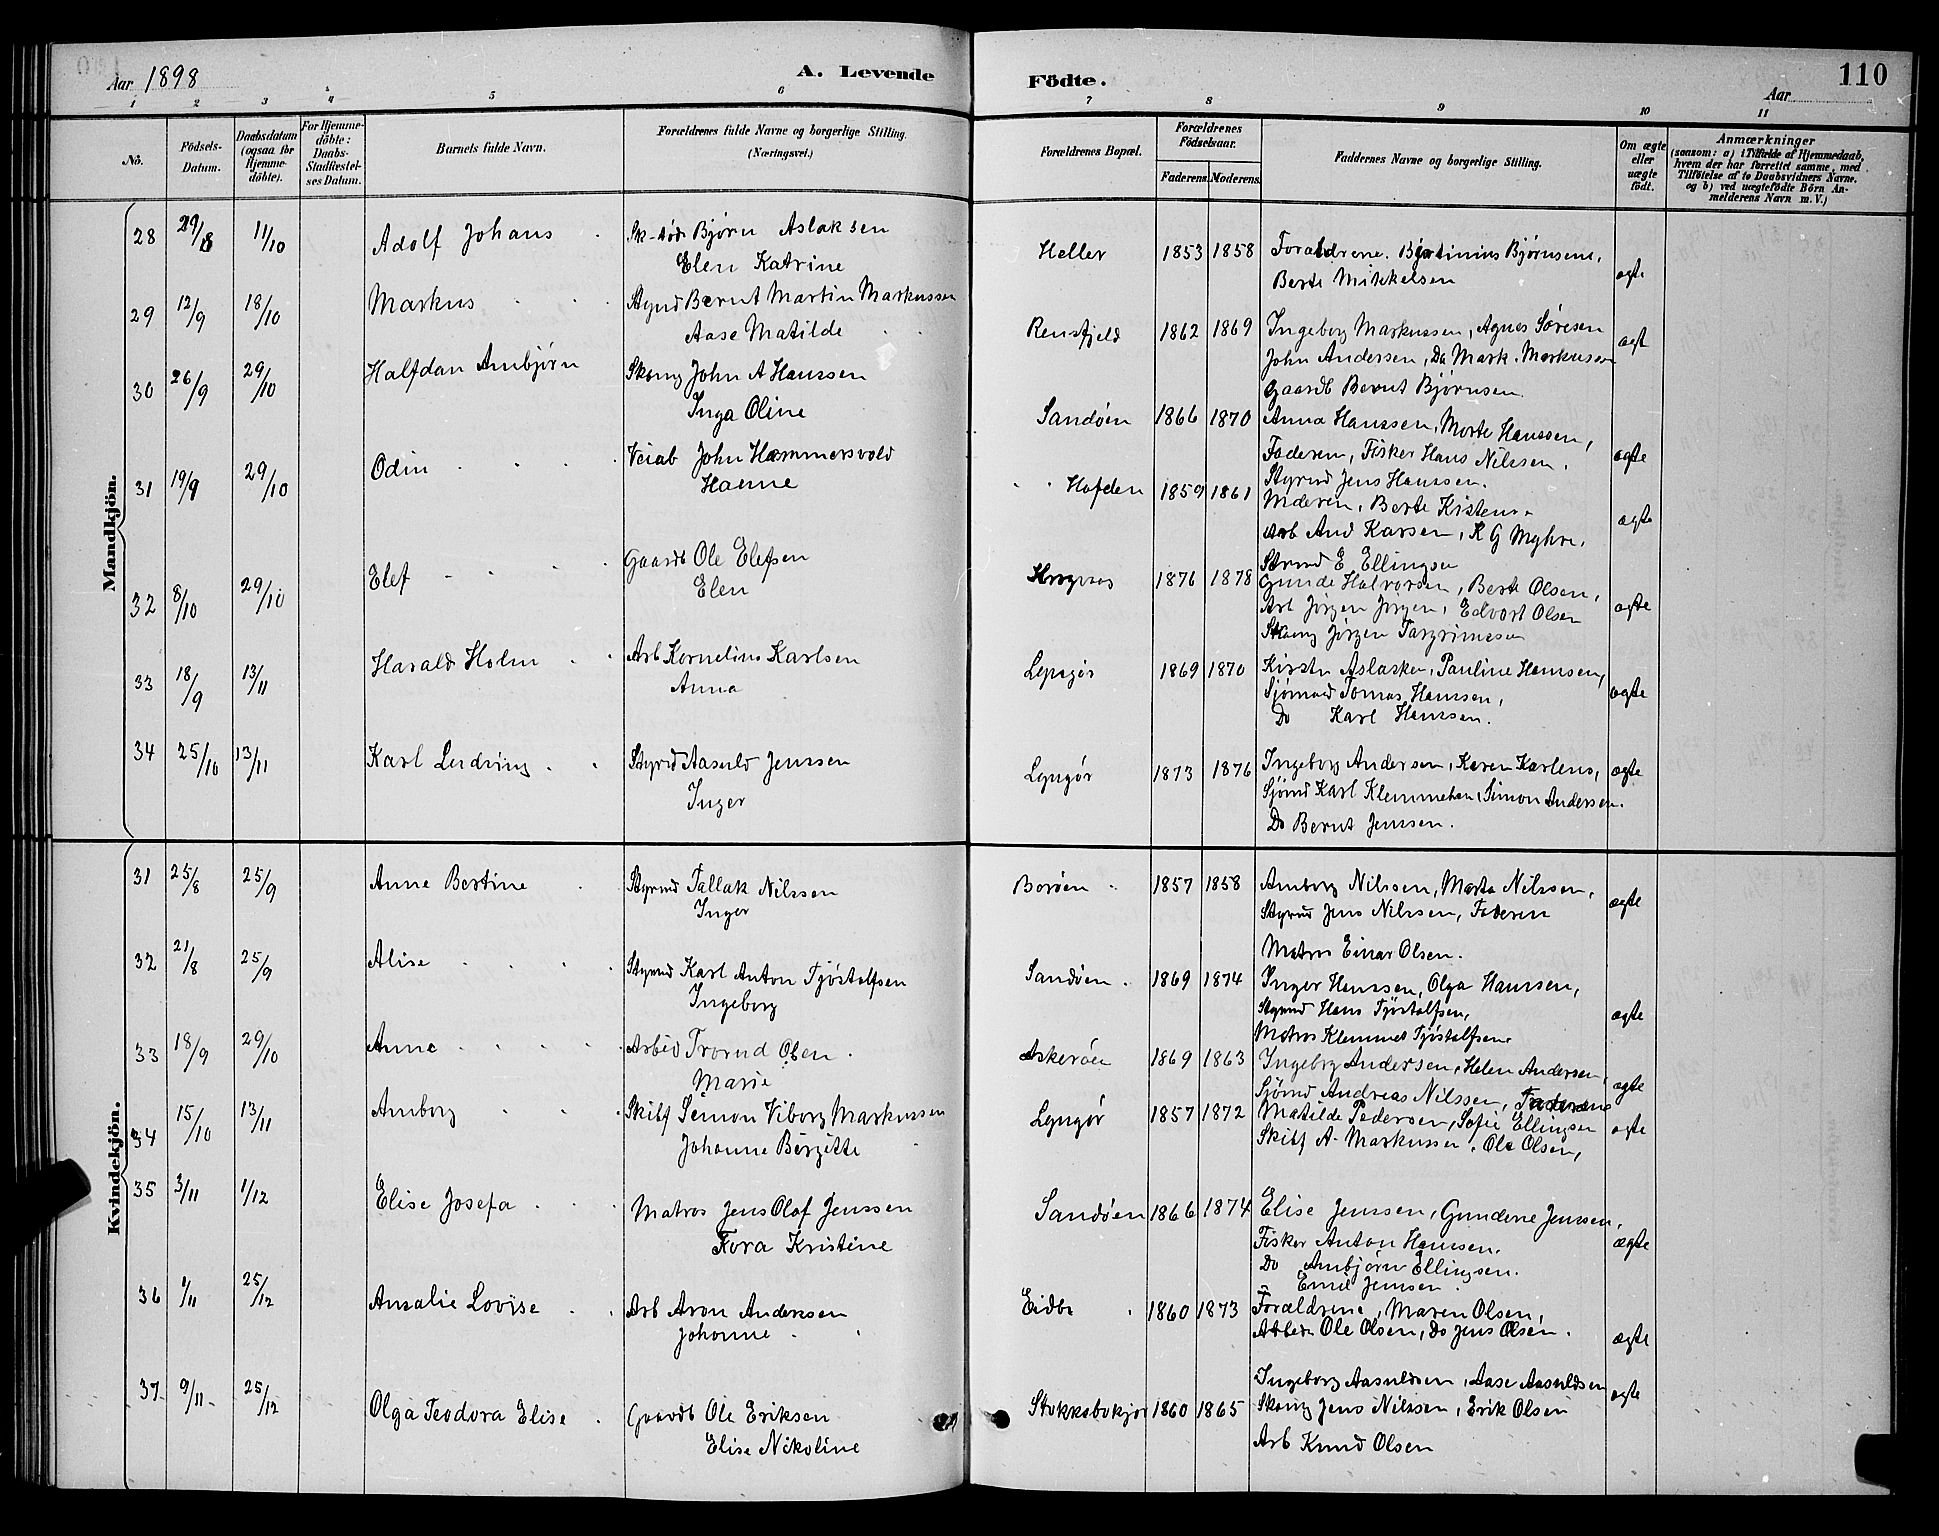 Aar 1898
A. Levende
Födte.
110
Aar
1 2 3 4 5 6 7 8 9 10 11
No.
Födsels-Datum.
Daabsdatum (ogsaa for Hjemme-döbte).
For Hjemme-döbte: Daabs-Stadfæstel-ses Datum.
Barnets fulde Navn.
Forældrenes fulde Navne og borgerlige Stilling. (Næringsvei.)
Forældrenes Bopæl.
Forældrenes Födselsaar.
Faderens. Moderens.
Faddernes Navne og borgerlige Stilling.
Om ægte eller uægte födt.
Anmærkninger
(saasom: a) i Tilfælde af Hjemmedaab, hvem der har forrettet samme, med Tilföielse af to Daabsvidners Navne. og b) ved uægtefödte Börn An-melderens Navn m. V.)
Mandkjön.
28 29/8 11/10 Adolf Johans Bjørn Aslaksen Heller 1853 1858 Forældrene. Bjørnsens, ægte
Elen Katrine Berte Mikkelsen
29 12/9 18/10 Markus Stymd Bernt Martin Markussen 1862 1869 Ingeborg Markussen, Agnes Søresen ægt
Aase Matilde John Andersen, Do Mark. Markussen
Gaardb Bernt Bjørnsen.
30 26/9 29/10 Halfdan Ambjørn Skomg John A Hanssen Sandøen 1866 1870 Anna Hanssen, Morte Hanssen, ægte
Inga Oline Faderen, Fisker Hans Nilssen,
Styrmd Jens Hanssen.
31 19/9 29/10 Odin Veiab John Hammersvold Hofden 1859 1861 Moderen, Berte Kistens ægte
Hanne Arb And Karsen, K G Myhre,
Strmd E Ellingsen
32 8/10 29/10 Elef Gaardb Ole Elefsen 1876 1878 Gunde Halvorsen, Berte Olsen, ægte
Elen Arb Jørgen Jørgen, Edvart Olsen
Skomg Jörgen Targrimesen
33 18/9 13/11 Harald Holm Arb Kornelius Karlsen Lyngør 1869 1870 Kirsti Aslaksen, Pauline Hansen, ægte
Anna Sjömand Tomas Hanssen,
Do Karl Hanssen.
34 25/10 13/11 Karl Ludvig Styrmd Aasuld Jenssen Lyngør 1873 1876 Ingeborg Andersen, Karen Karlens, ægte
Inger Sjömd Karl Klemmetsen, Simon Andersen.
Do Bernt Jenssen.
Kvindekjön.
31 25/8 25/9 Anne Bertine Styrmd Tallak Nilssen Borøen 1857 1858 Amborg Nilssen, Marta Nilssen, ægte
Inger Styrmd Jens Nilssen, Faderen
Matros Einar Olsen.
32 21/8 25/9 Alise Styrmd Karl Anton Tjöstolfsen Sandøen 1869 1874 Inger Hanssen, Olga Hanssen, ægte
Ingeborg Styrmd Hans Tjöstolfsen,
Matros Klemmet Tjöstolfsen
33 18/9 29/10 Anne Arbeid Trond Olsen Askerøen 1869 1863 Ingeborg Andersen, Helen Andersen, ægte
Marie Sjömd Andreas Nilssen, Faderen
34 15/10 13/11 Amborg Skibf Simon Viborg Markussen Lyngør 1857 1872 Matilde Pedersen, Sofie Ellingsen ægte
Johanne Bergitte Skibf A. Markussen, Ole Olsen,
35 3/11 1/12 Elise Josefa Matros Jens Olaf Jenssen Sandøen 1866 1874 Elise Jenssen, Gunderne Jenssen, ægte
Tora Kristine Fisker Anton Hanssen.
Do Ambjörn Ellingsen.
Emil Jensen.
36 1/11 25/12 Ansalie Lovise Arb Aron Andersen Eidbo 1860 1873 Forældrene, Maren Olsen, ægte
Johanne Arbeidr Ole Olsen, Do Jens Olsen.
37 9/11 25/12 Olga Teodora Elise Gaardb Ole Eriksen 1860 1865 Ingeborg Aasuldsen, Aase Aasuldsen ægte
Elise Nikoline Skomg Jens Nilssen, Erik Olsen
Arb Knud Olsen